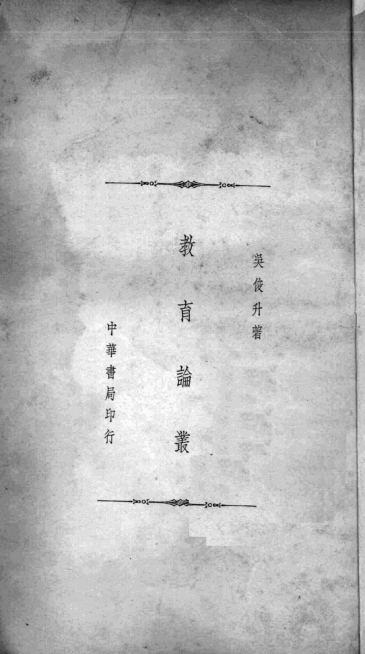 吳俊升著
教育論叢
中華書局印行